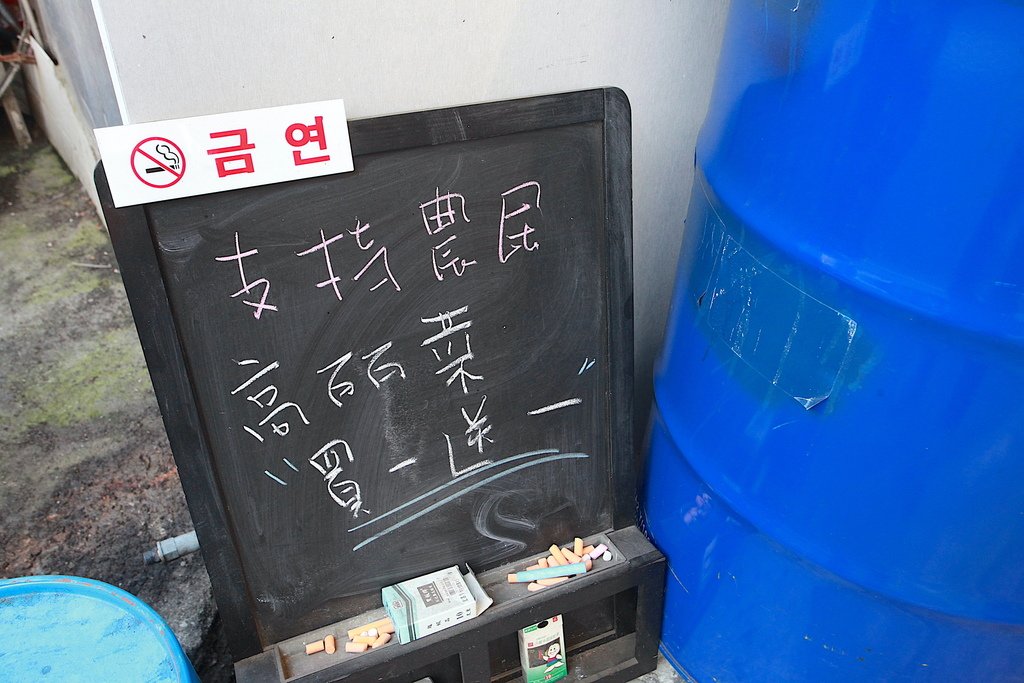 금연
支持農民
高丽菜
"買一送一"